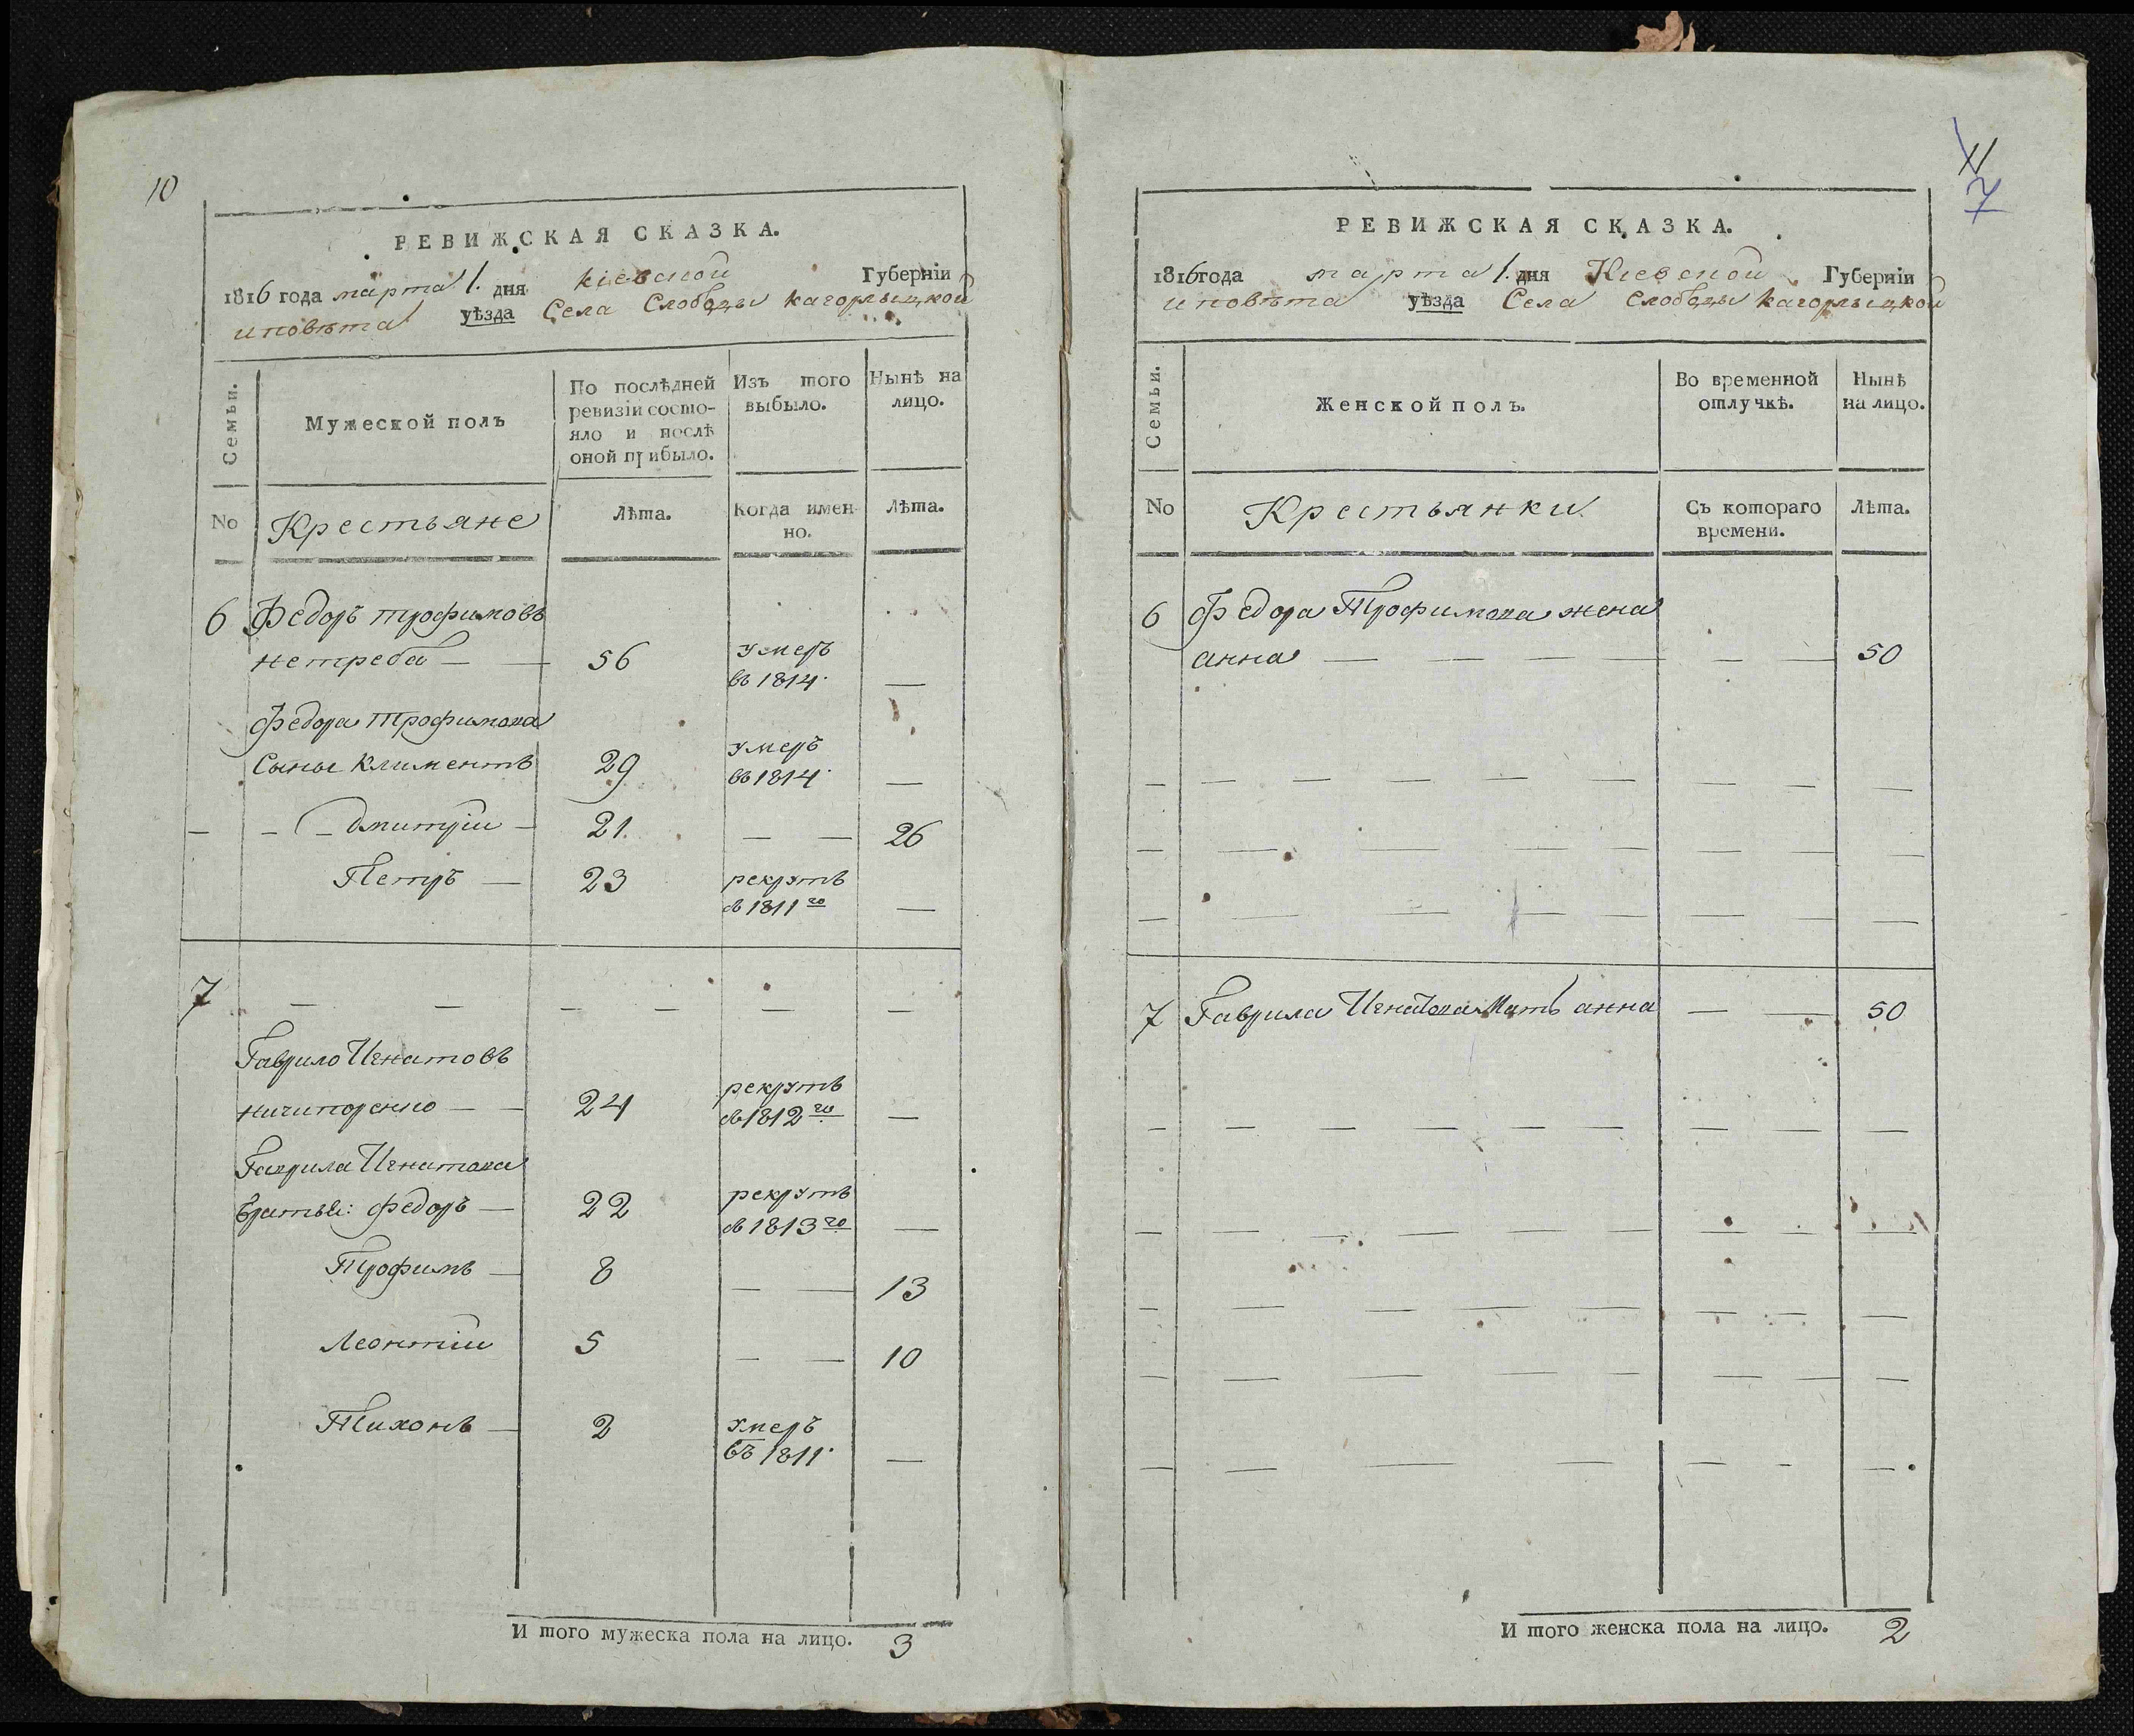 10
РЕВИЖСКАЯ СКАЗКА.
1816 года марта 1. дня Кіевской Губерніи
и повѣта уѣзда Села Слободы Кагорлыцкой
Семьи.
Мужеской полъ
По послѣдней
ревизіи состо-
яло и послѣ
оной прибыло.
Изъ того
выбыло.
Нынѣ на
лицо.
No
Крестьяне
Лѣта.
Когда имен-
но.
Лѣта.
6 Федоръ трофимовъ
нетреба — — 56 умеръ
въ 1814. —
Федора Трофимова
Сыны Климентъ 29 умеръ
въ 1814. —
— - — дмитріи — 21. — — 26
Петръ — 23 рекрутъ
въ 1811го —
7 — — — — — —
Гаврило Игнатовъ
ничипоренко — — 24 рекрутъ
въ 1812го —
Гаврила Игнатова
братья: федоръ — 22 рекрутъ
въ 1813го —
Трофимъ — 8 — — 13
Леонтіи 5 — — 10
Тихонъ — 2 умеръ
въ 1811. —
И того мужеска пола на лицо. 3
11
7
РЕВИЖСКАЯ СКАЗКА.
1816 года марта 1. дня Кіевской Губерніи
и повѣта уѣзда Села Слободы Кагорлыцкой
Семьи.
Женской полъ.
Во временной
отлучкѣ.
Нынѣ
на лицо.
No
Крестьянки
Съ котораго
времени.
Лѣта.
6 Федора Трофимова жена
анна — — — — — — 50
7 Гаврила Игнатова Мать анна — — 50
И того женска пола на лицо. 2